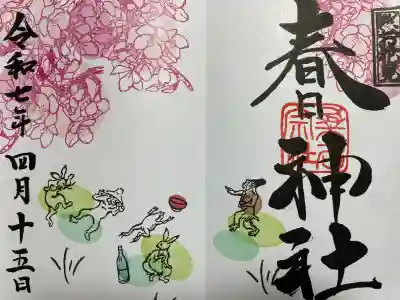 春日神社
令和七年四月十五日